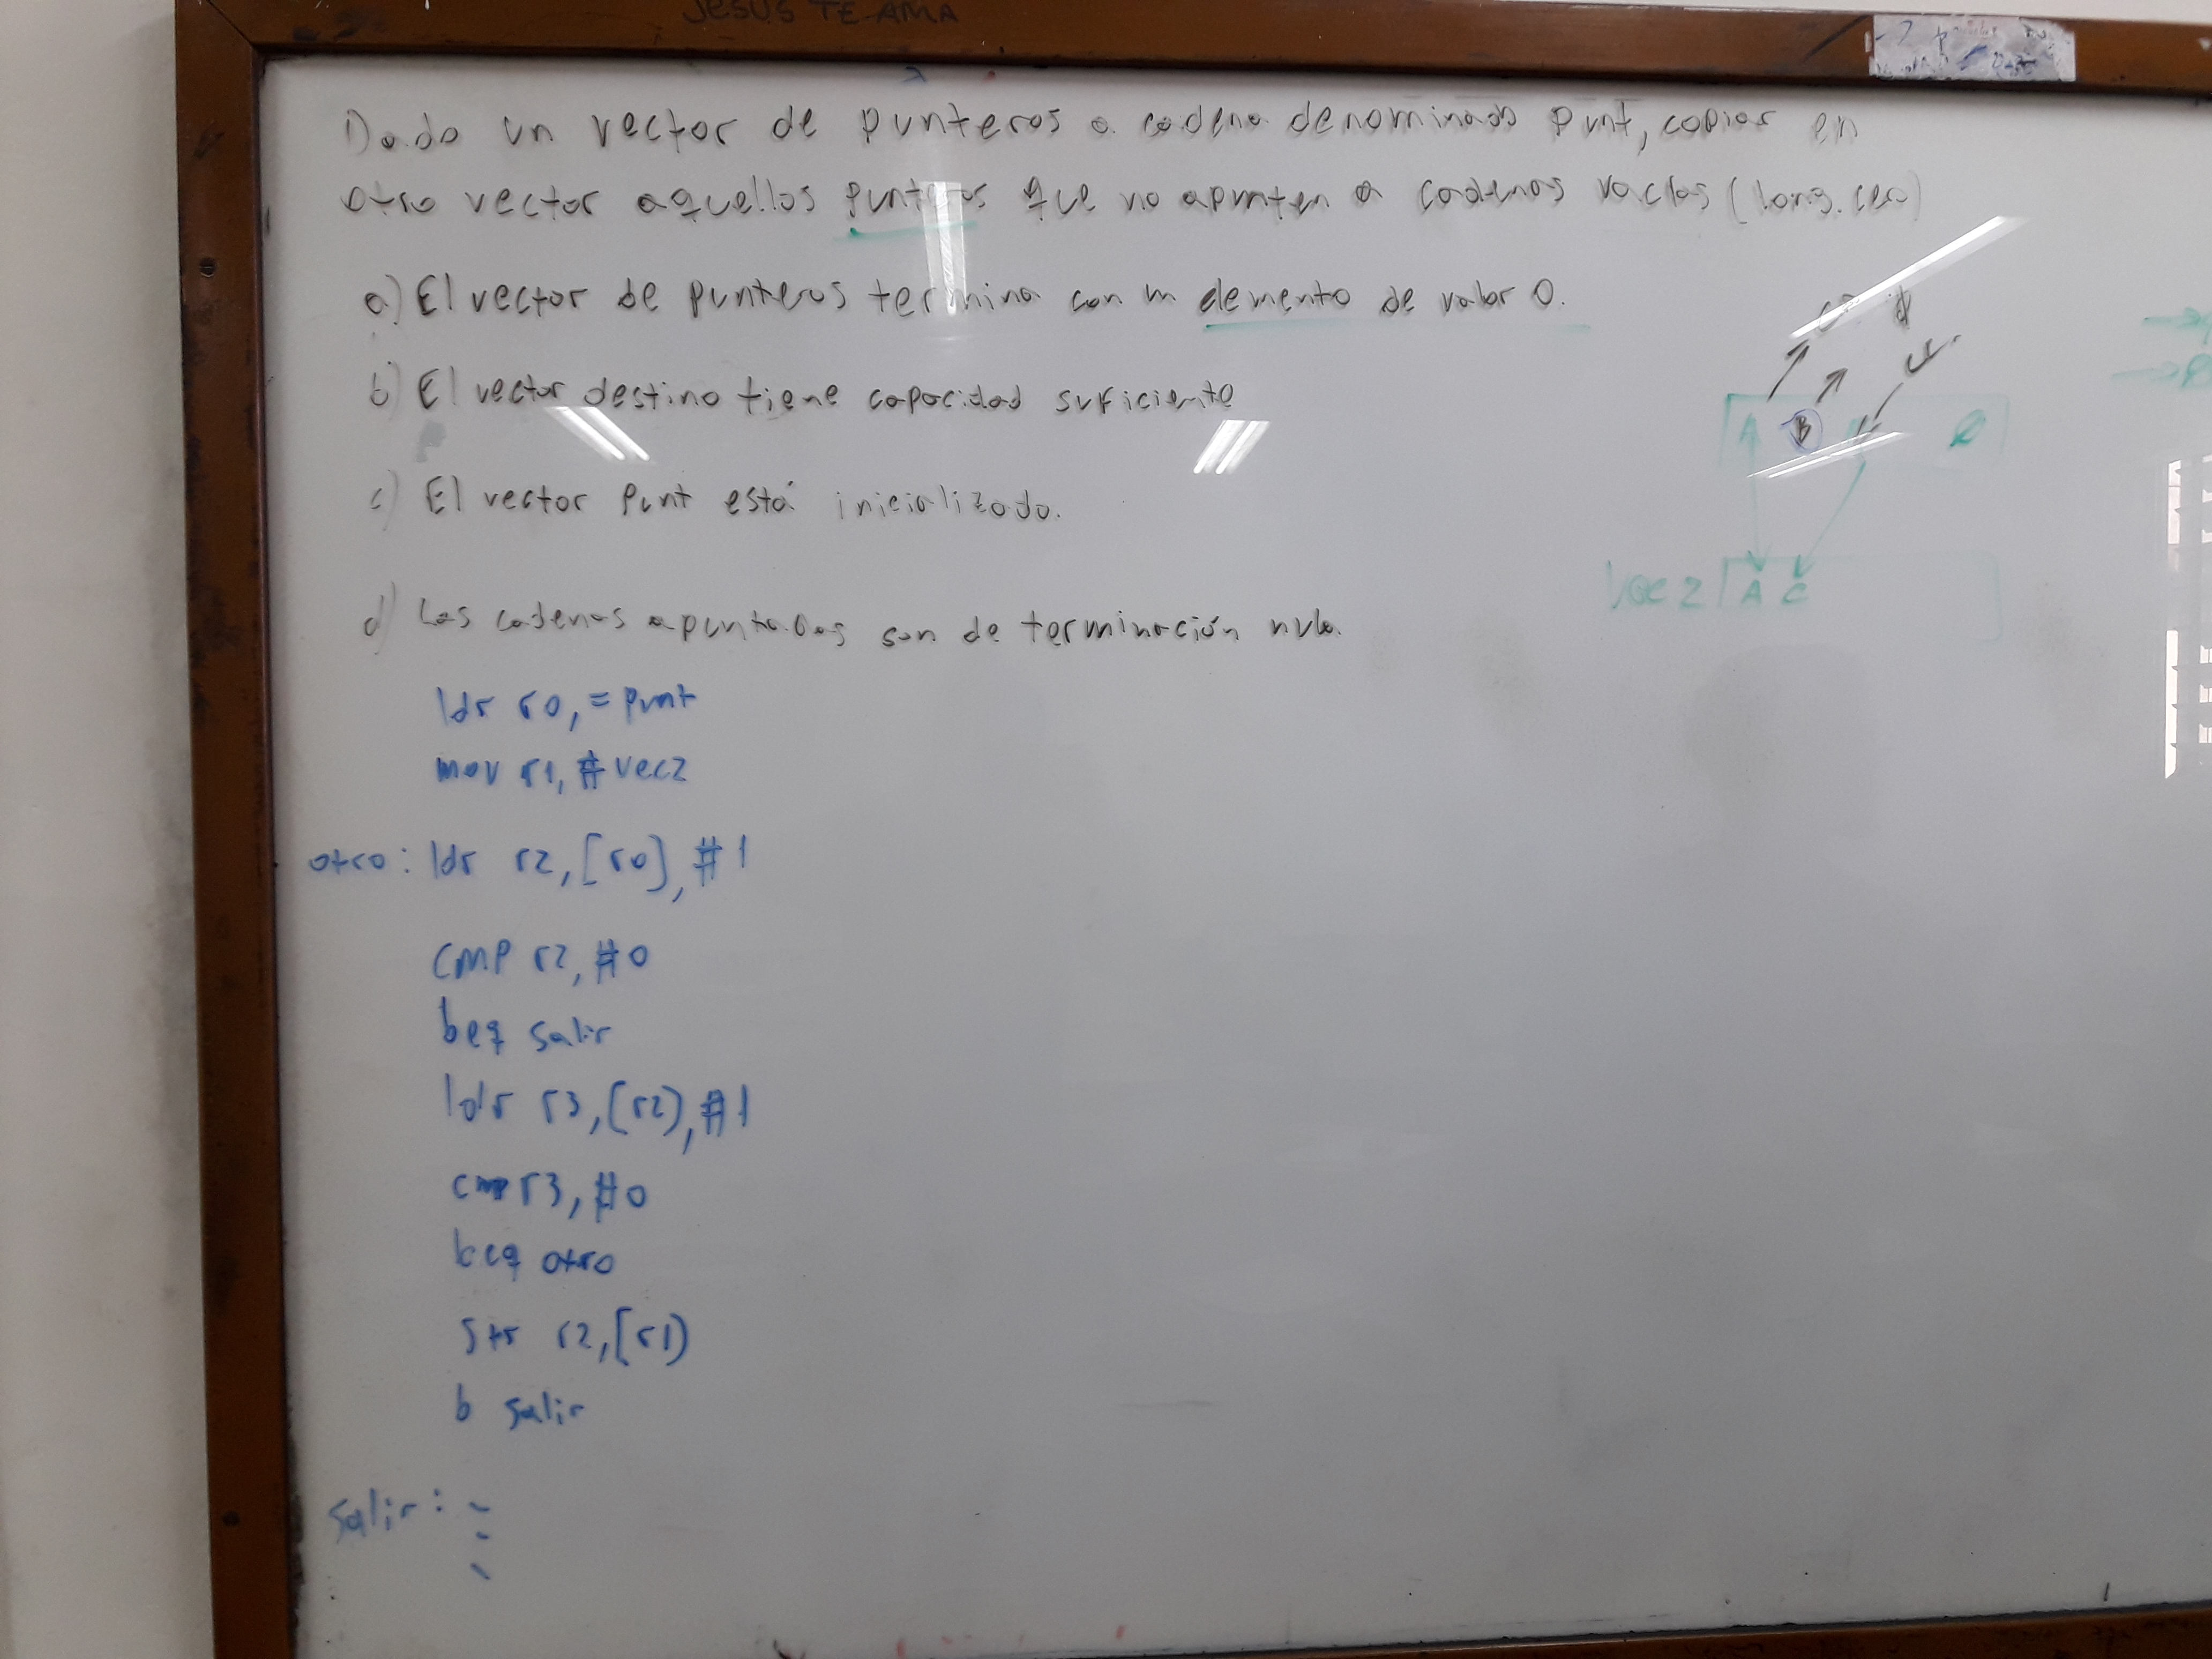 JESUS TE AMA
Dado un vector de punteros a cadena denominado punt, copiar en
otro vector aquellos punteros que no apunten a cadenas vacías (long. cero)
a) El vector de punteros termina con un elemento de valor 0.
b) El vector destino tiene capacidad suficiente
c) El vector Punt está inicializado.
d) Las cadenas apuntadas son de terminación nula.
A B
Vec 2 A C
ldr r0, = punt
mov r1, # vec2
otro: ldr r2, [r0], #1
cmp r2, #0
beq salir
ldr r3, [r2), #1
cmp r3, #0
beq otro
str r2, [r1)
b salir
salir: